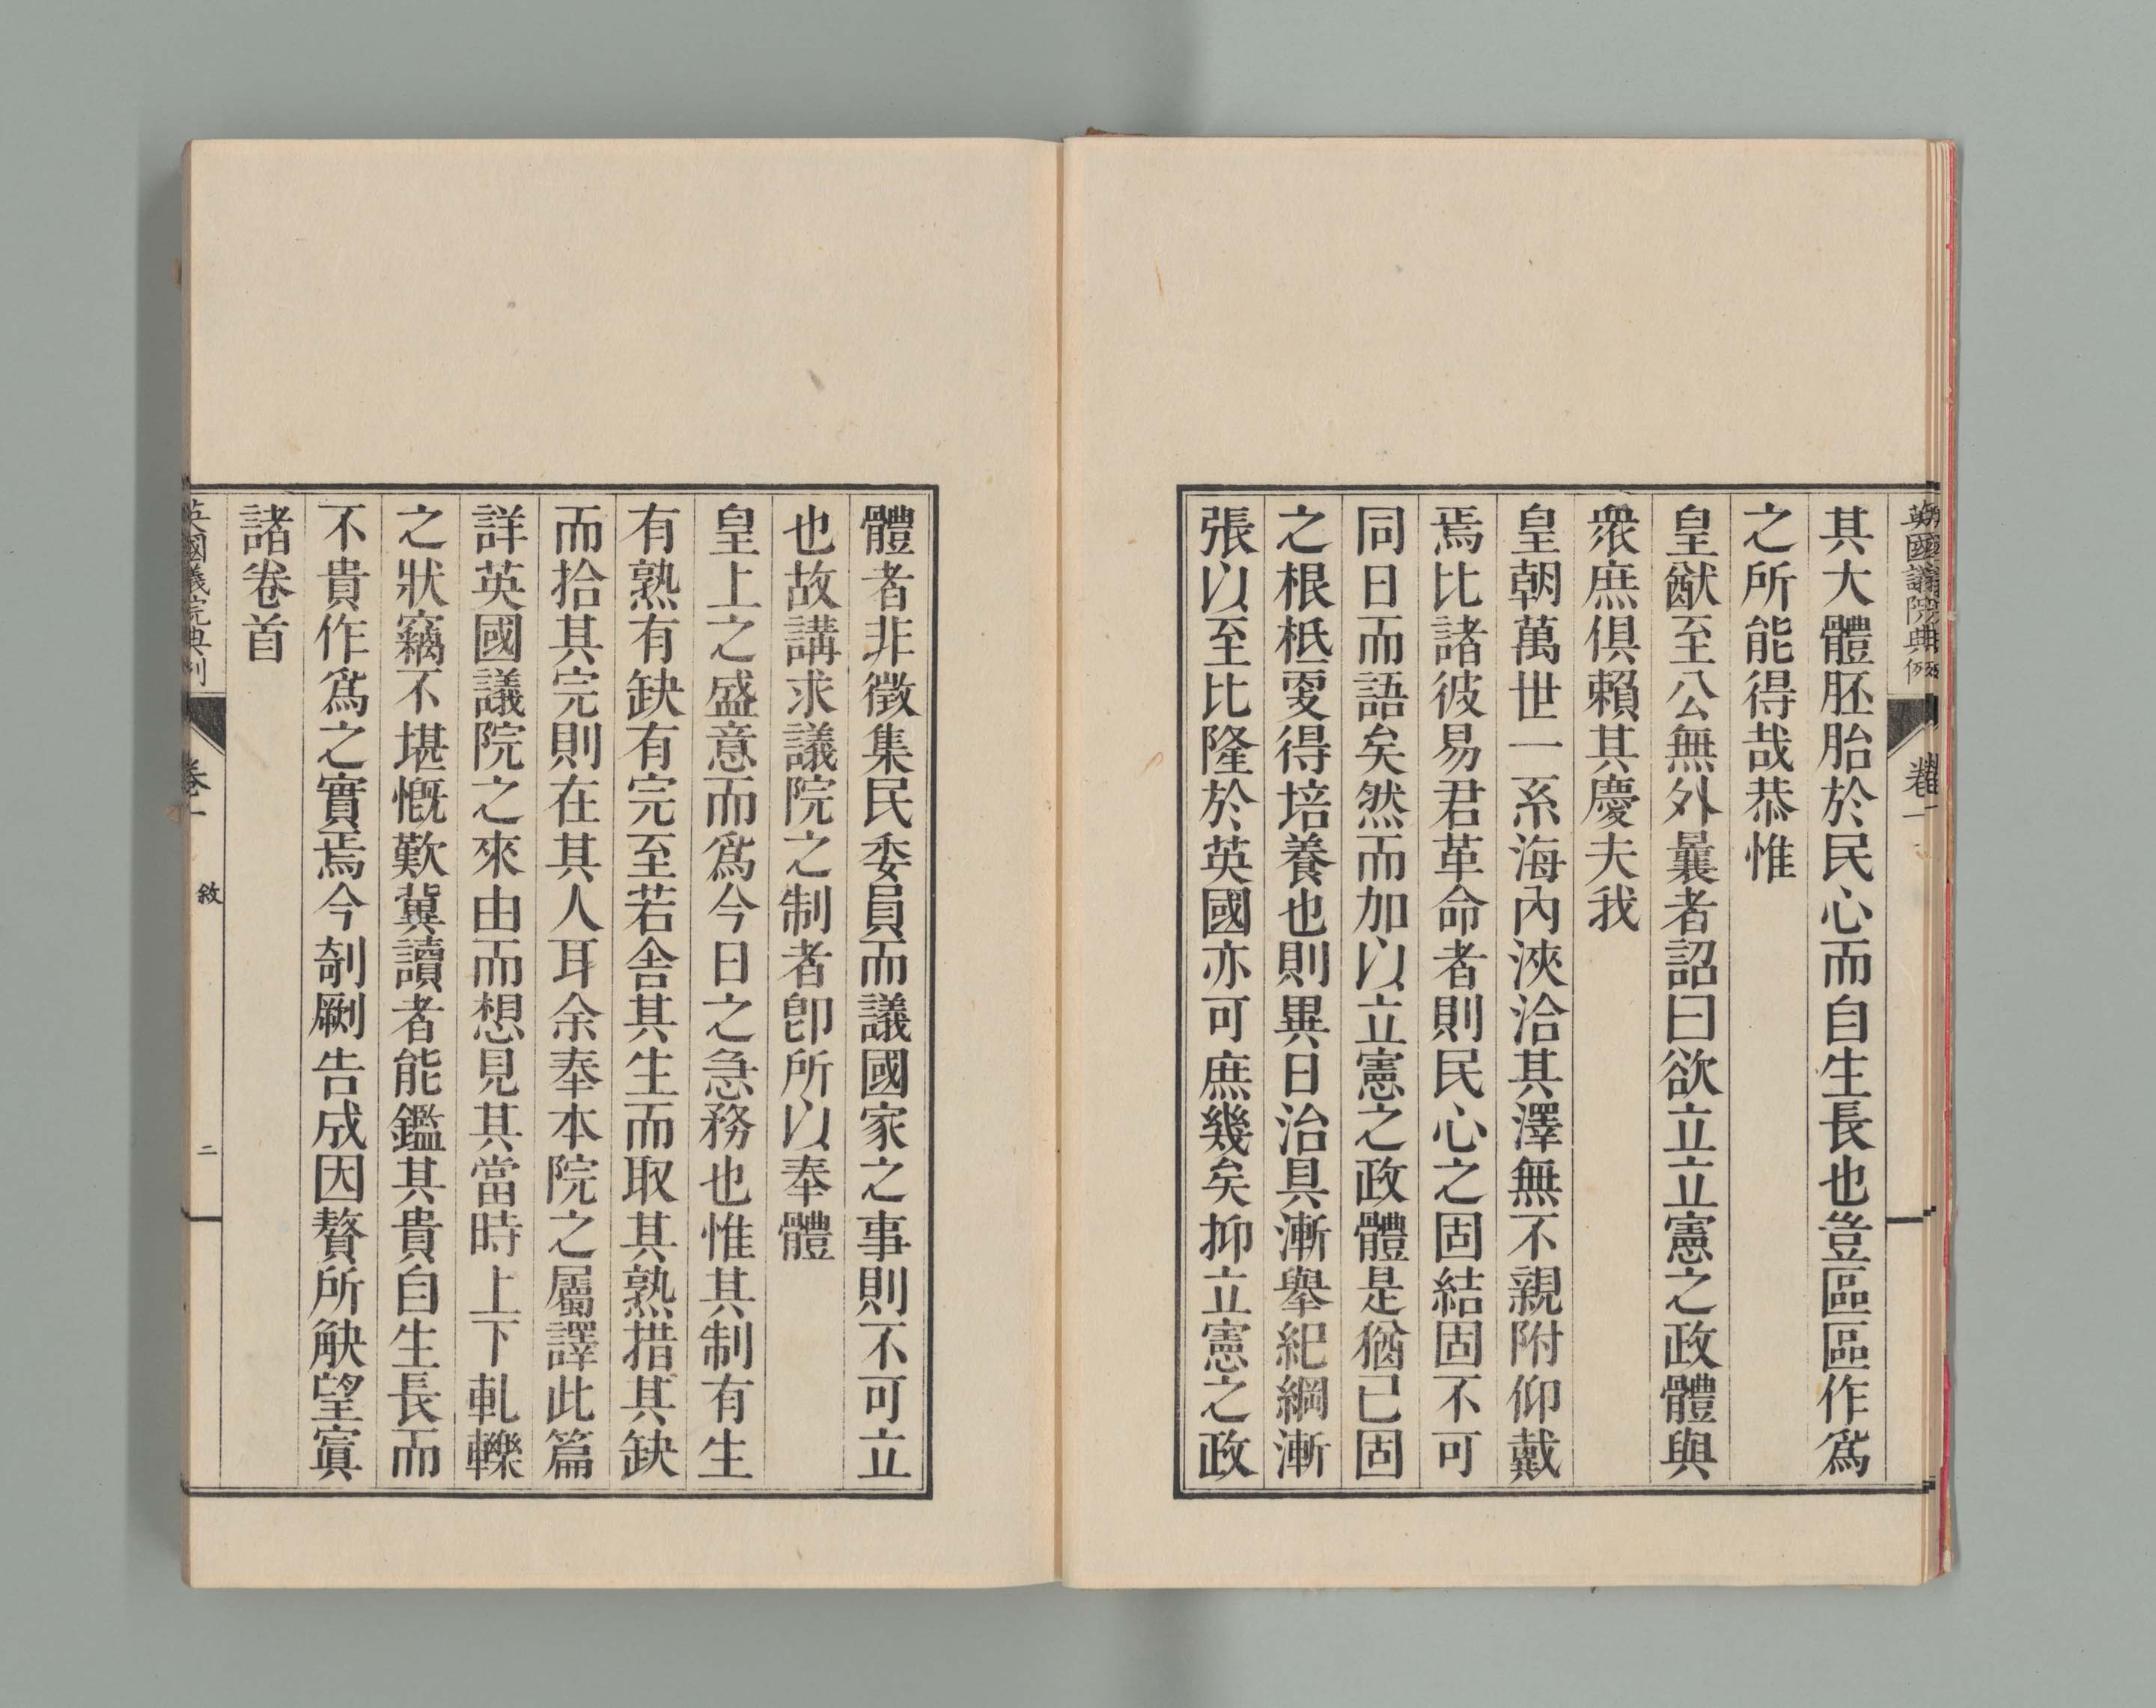 英國議院典例　卷一
其大體胚胎於民心而自生長也豈區區作爲
之所能得哉恭惟
皇猷至公無外曩者詔曰欲立立憲之政體與
衆庶俱賴其慶夫我
皇朝萬世一系海內浹洽其澤無不親附仰戴
焉比諸彼易君革命者則民心之固結固不可
同日而語矣然而加以立憲之政體是猶已固
之根柢雯得培養也則異日治具漸舉紀綱漸
張以至比隆於英國亦可庶幾矣抑立憲之政
體者非徵集民委員而議國家之事則不可立
也故講求議院之制者卽所以奉體
皇上之盛意而爲今日之急務也惟其制有生
有熟有缺有完至若舍其生而取其熟措其缺
而拾其完則在其人耳余奉本院之屬譯此篇
詳英國議院之來由而想見其當時上下軋轢
之狀竊不堪慨歎冀讀者能鑑其貴自生長而
不貴作爲之實焉今剞劂告成因贅所觖望寘
諸卷首
英國議院典例　卷一　敘　二